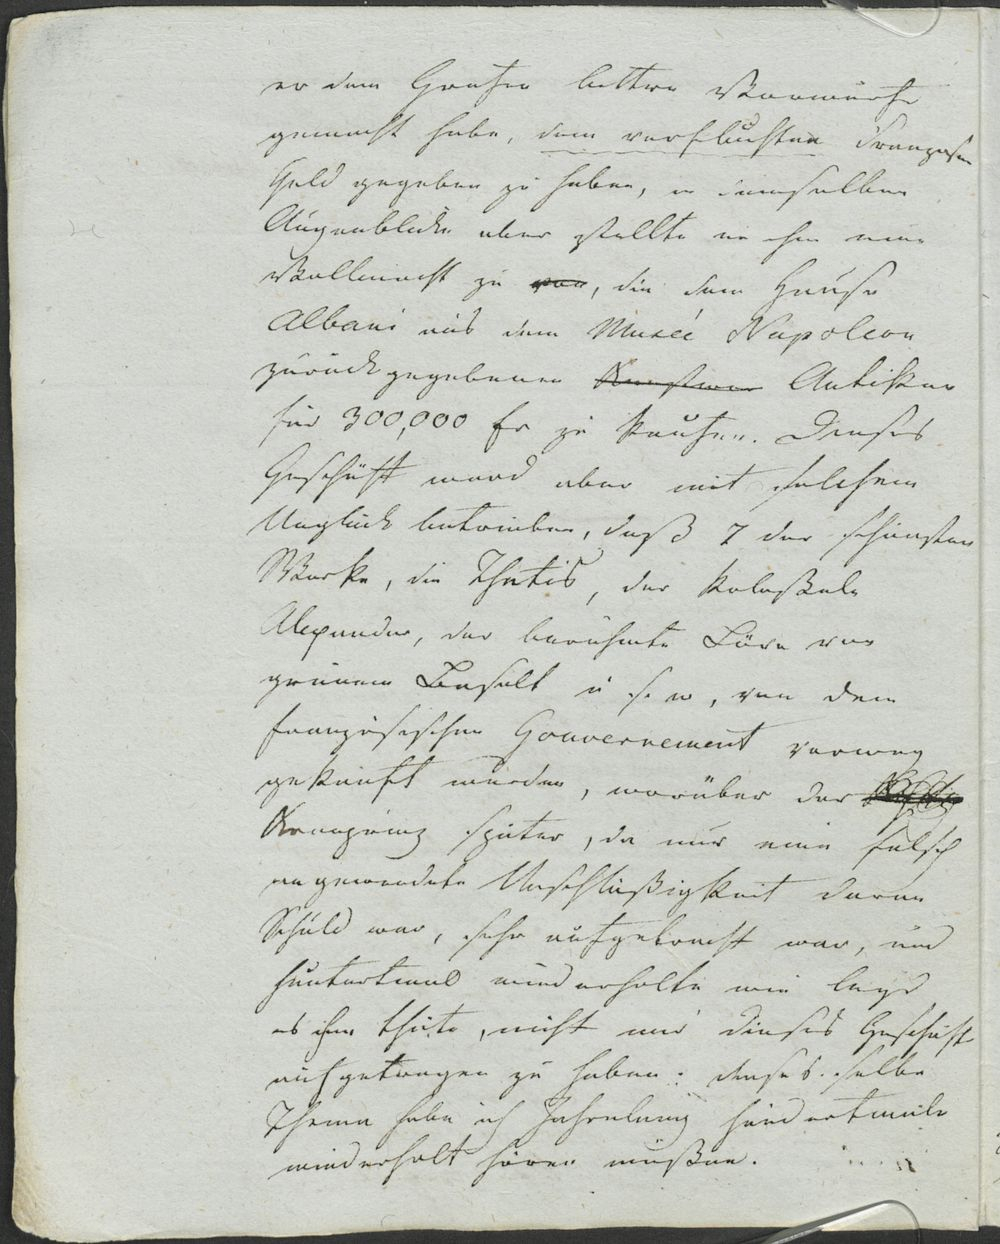 er dem Grafen bittre Vorwürfe
gemacht habe, dem verfluchten Franzosen
Geld gegeben zu haben, in demselben
Augenblicke aber stellte er ihm eine
Vollmacht zu von, die dem Hause
Albani aus dem Museé Napoleon
zurückgegebenen Kunstwer Antiken
für 300,000 fr zu kaufen. Dieses
Geschäft ward aber mit solchem
Unglück betrieben, daß 7 der schönsten
Werke, die Thetis, der koloßale
Alexander, der berühmte Löwe von
grünem Basalt u s. w, von dem
französischen Gouvernement vorweg
gekauft wurden, worüber der
Kronprinz später, da nur eine falsch
angewendete Unschlüßigkeit daran
Schuld war, sehr aufgebracht war, und
hundertmal wiederholte wie leyd
es ihm thäte, nicht mir dieses Geschäft
aufgetragen zu haben: dieses selbe
Thema habe ich Jahrelang hundertmale
wiederholt hören müßen.